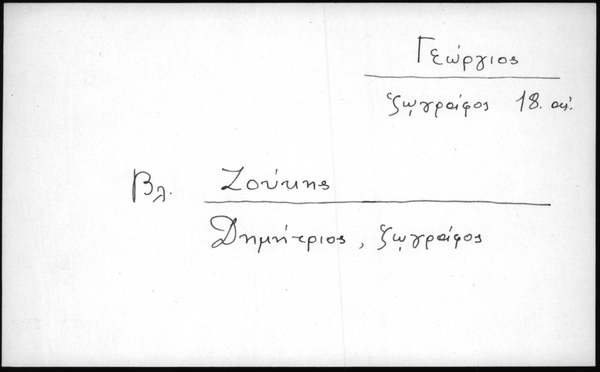 Γεώργιος
ζῳγράφος 18. αἰ.
Βλ. Ζούκης
Δημήτριος, ζῳγράφος